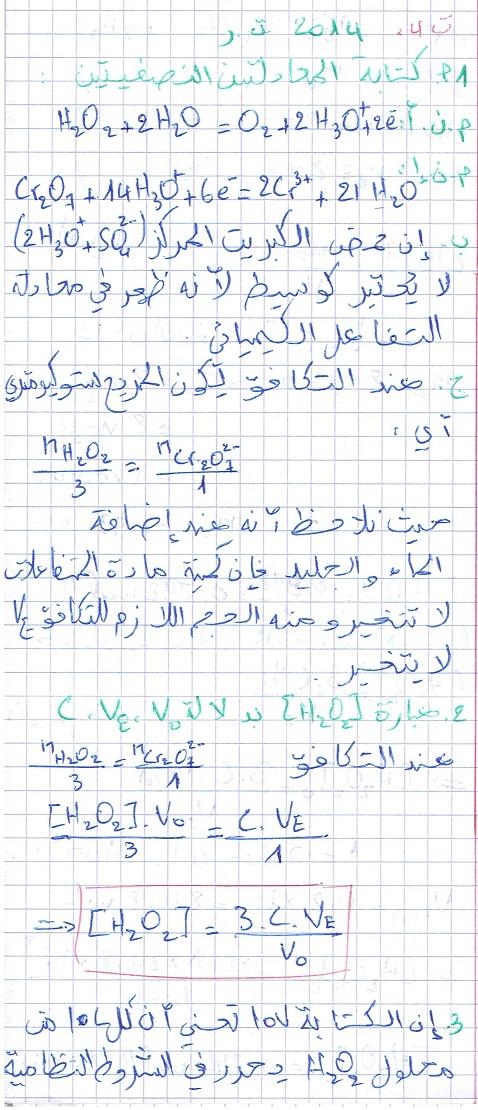 ت4. 2014 ت. ر
1أ كتابة المعادلتين النصفيتين :
م.ن.أ: H₂O₂ + 2H₂O = O₂ + 2H₃O⁺ + 2e⁻
م.ن.إ:
Cr₂O₇ + 14H₃O⁺ + 6e⁻ = 2Cr³⁺ + 21 H₂O
ب. إن حمض الكبريت المركز (2H₃O⁺ + SO₄²⁻)
لا يعتبر كوسيط لأنه ظهر في معادلة
التفاعل الكيميائي.
ج. عند التكافؤ يكون المزيج ستوكيومتري
أي :
n H₂O₂ / 3 = n Cr₂O₇²⁻ / 1
حيث نلاحظ أنه عند إضافة
الماء والجليد فإن كمية مادة المتفاعلات
لا تتغير ومنه الحجم اللازم للتكافؤ V_E
لا يتغير.
2. عبارة [H₂O₂] بدلالة C . V_E . V₀
عند التكافؤ n H₂O₂ / 3 = n Cr₂O₇²⁻ / 1
[H₂O₂] . V₀ / 3 = C . V_E / 1
⇒ [H₂O₂] = 3 . C . V_E / V₀
3. إن الكتابة 10V تعني أن كل 1L من
محلول H₂O₂ يحرر في الشروط النظامية